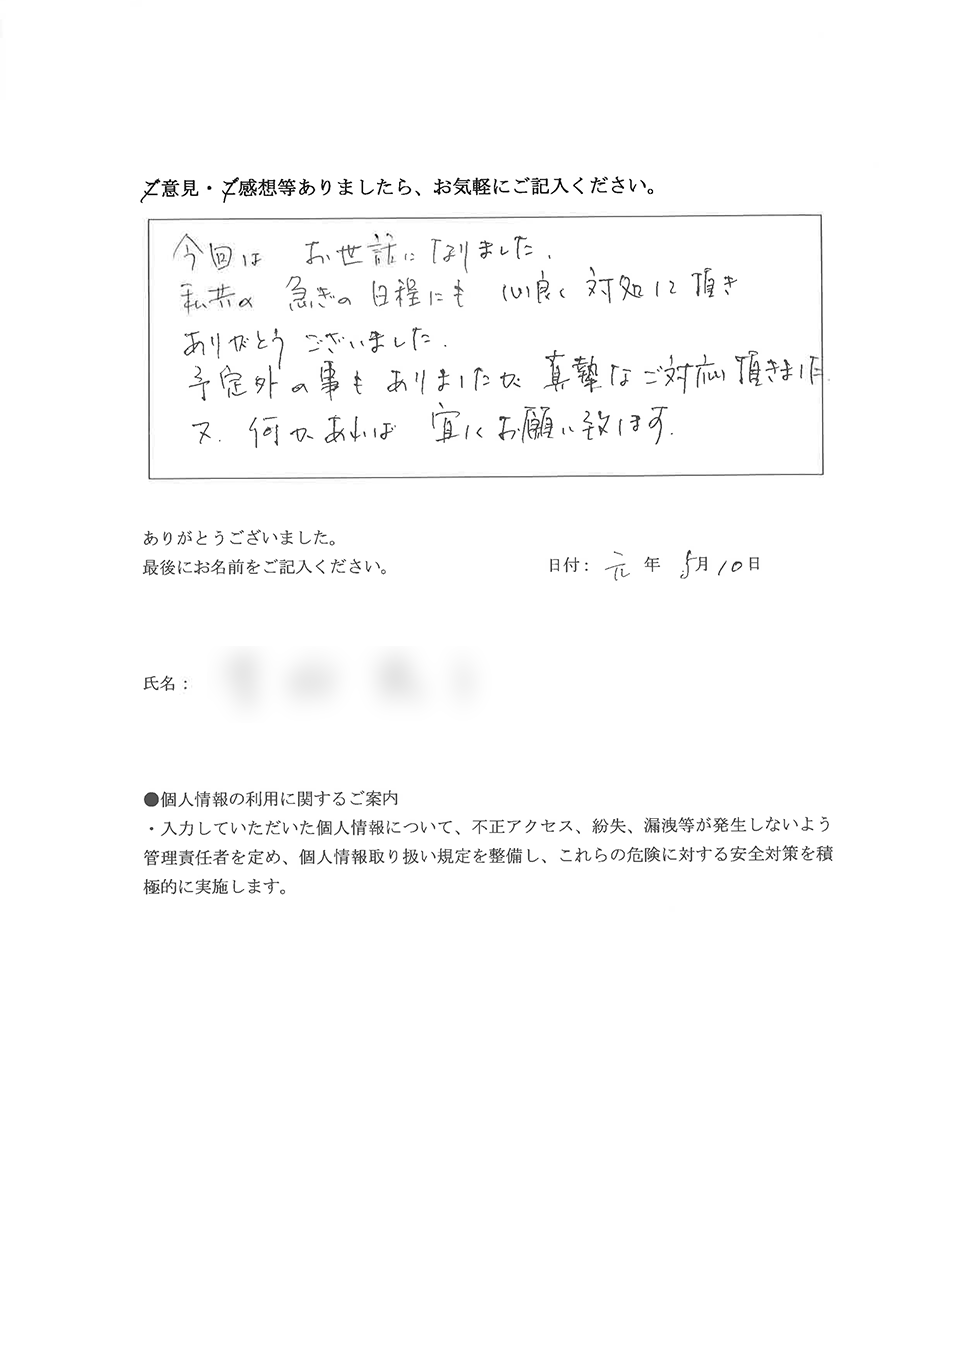 ご意見・ご感想等ありましたら、お気軽にご記入ください。
今回は お世話になりました.
私共の 急ぎの日程にも 心良く 対処して頂き
ありがとう ございました.
予定外の事も ありましたが 真摯なご対応頂きました.
又. 何か あれば 宜しく お願い致します.
ありがとうございました。
最後にお名前をご記入ください。 日付： 元 年 5月 10日
氏名：
●個人情報の利用に関するご案内
・入力していただいた個人情報について、不正アクセス、紛失、漏洩等が発生しないよう
管理責任者を定め、個人情報取り扱い規定を整備し、これらの危険に対する安全対策を積
極的に実施します。